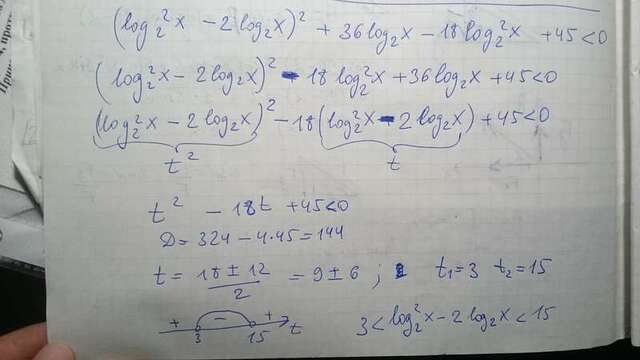 (log₂²x - 2log₂x)² + 36log₂x - 18log₂²x + 45<0
(log₂²x - 2log₂x)² - 18log₂²x + 36log₂x + 45<0
(log₂²x - 2log₂x)² - 18(log₂²x - 2log₂x) + 45<0
t² t
t² - 18t + 45<0
D = 324 - 4·45 = 144
t = (18 ± 12)/2 = 9 ± 6 ; t₁=3 t₂=15
+ - + 3 15 t 3 < log₂²x - 2log₂x < 15